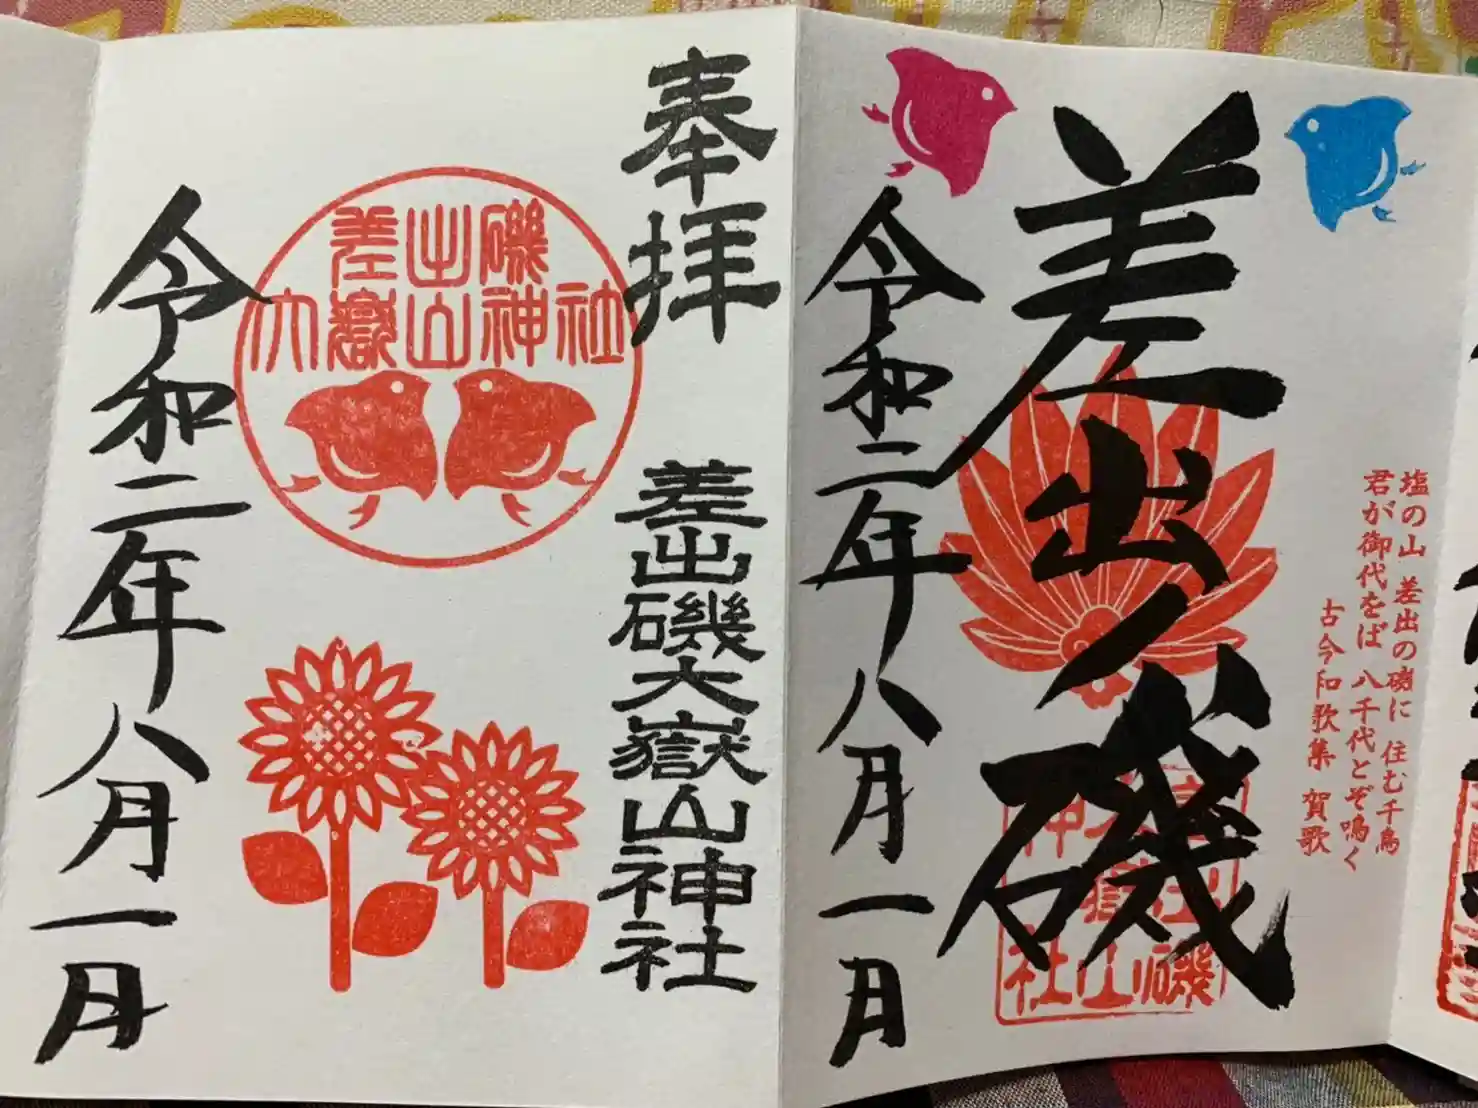 塩の山 差出の磯に 住む千鳥
君が御代をば 八千代とぞ鳴く
古今和歌集 賀歌
差出ノ磯
令和二年八月一日
奉拝
差出磯大嶽山神社
差出磯
大嶽山神社
令和二年八月一日